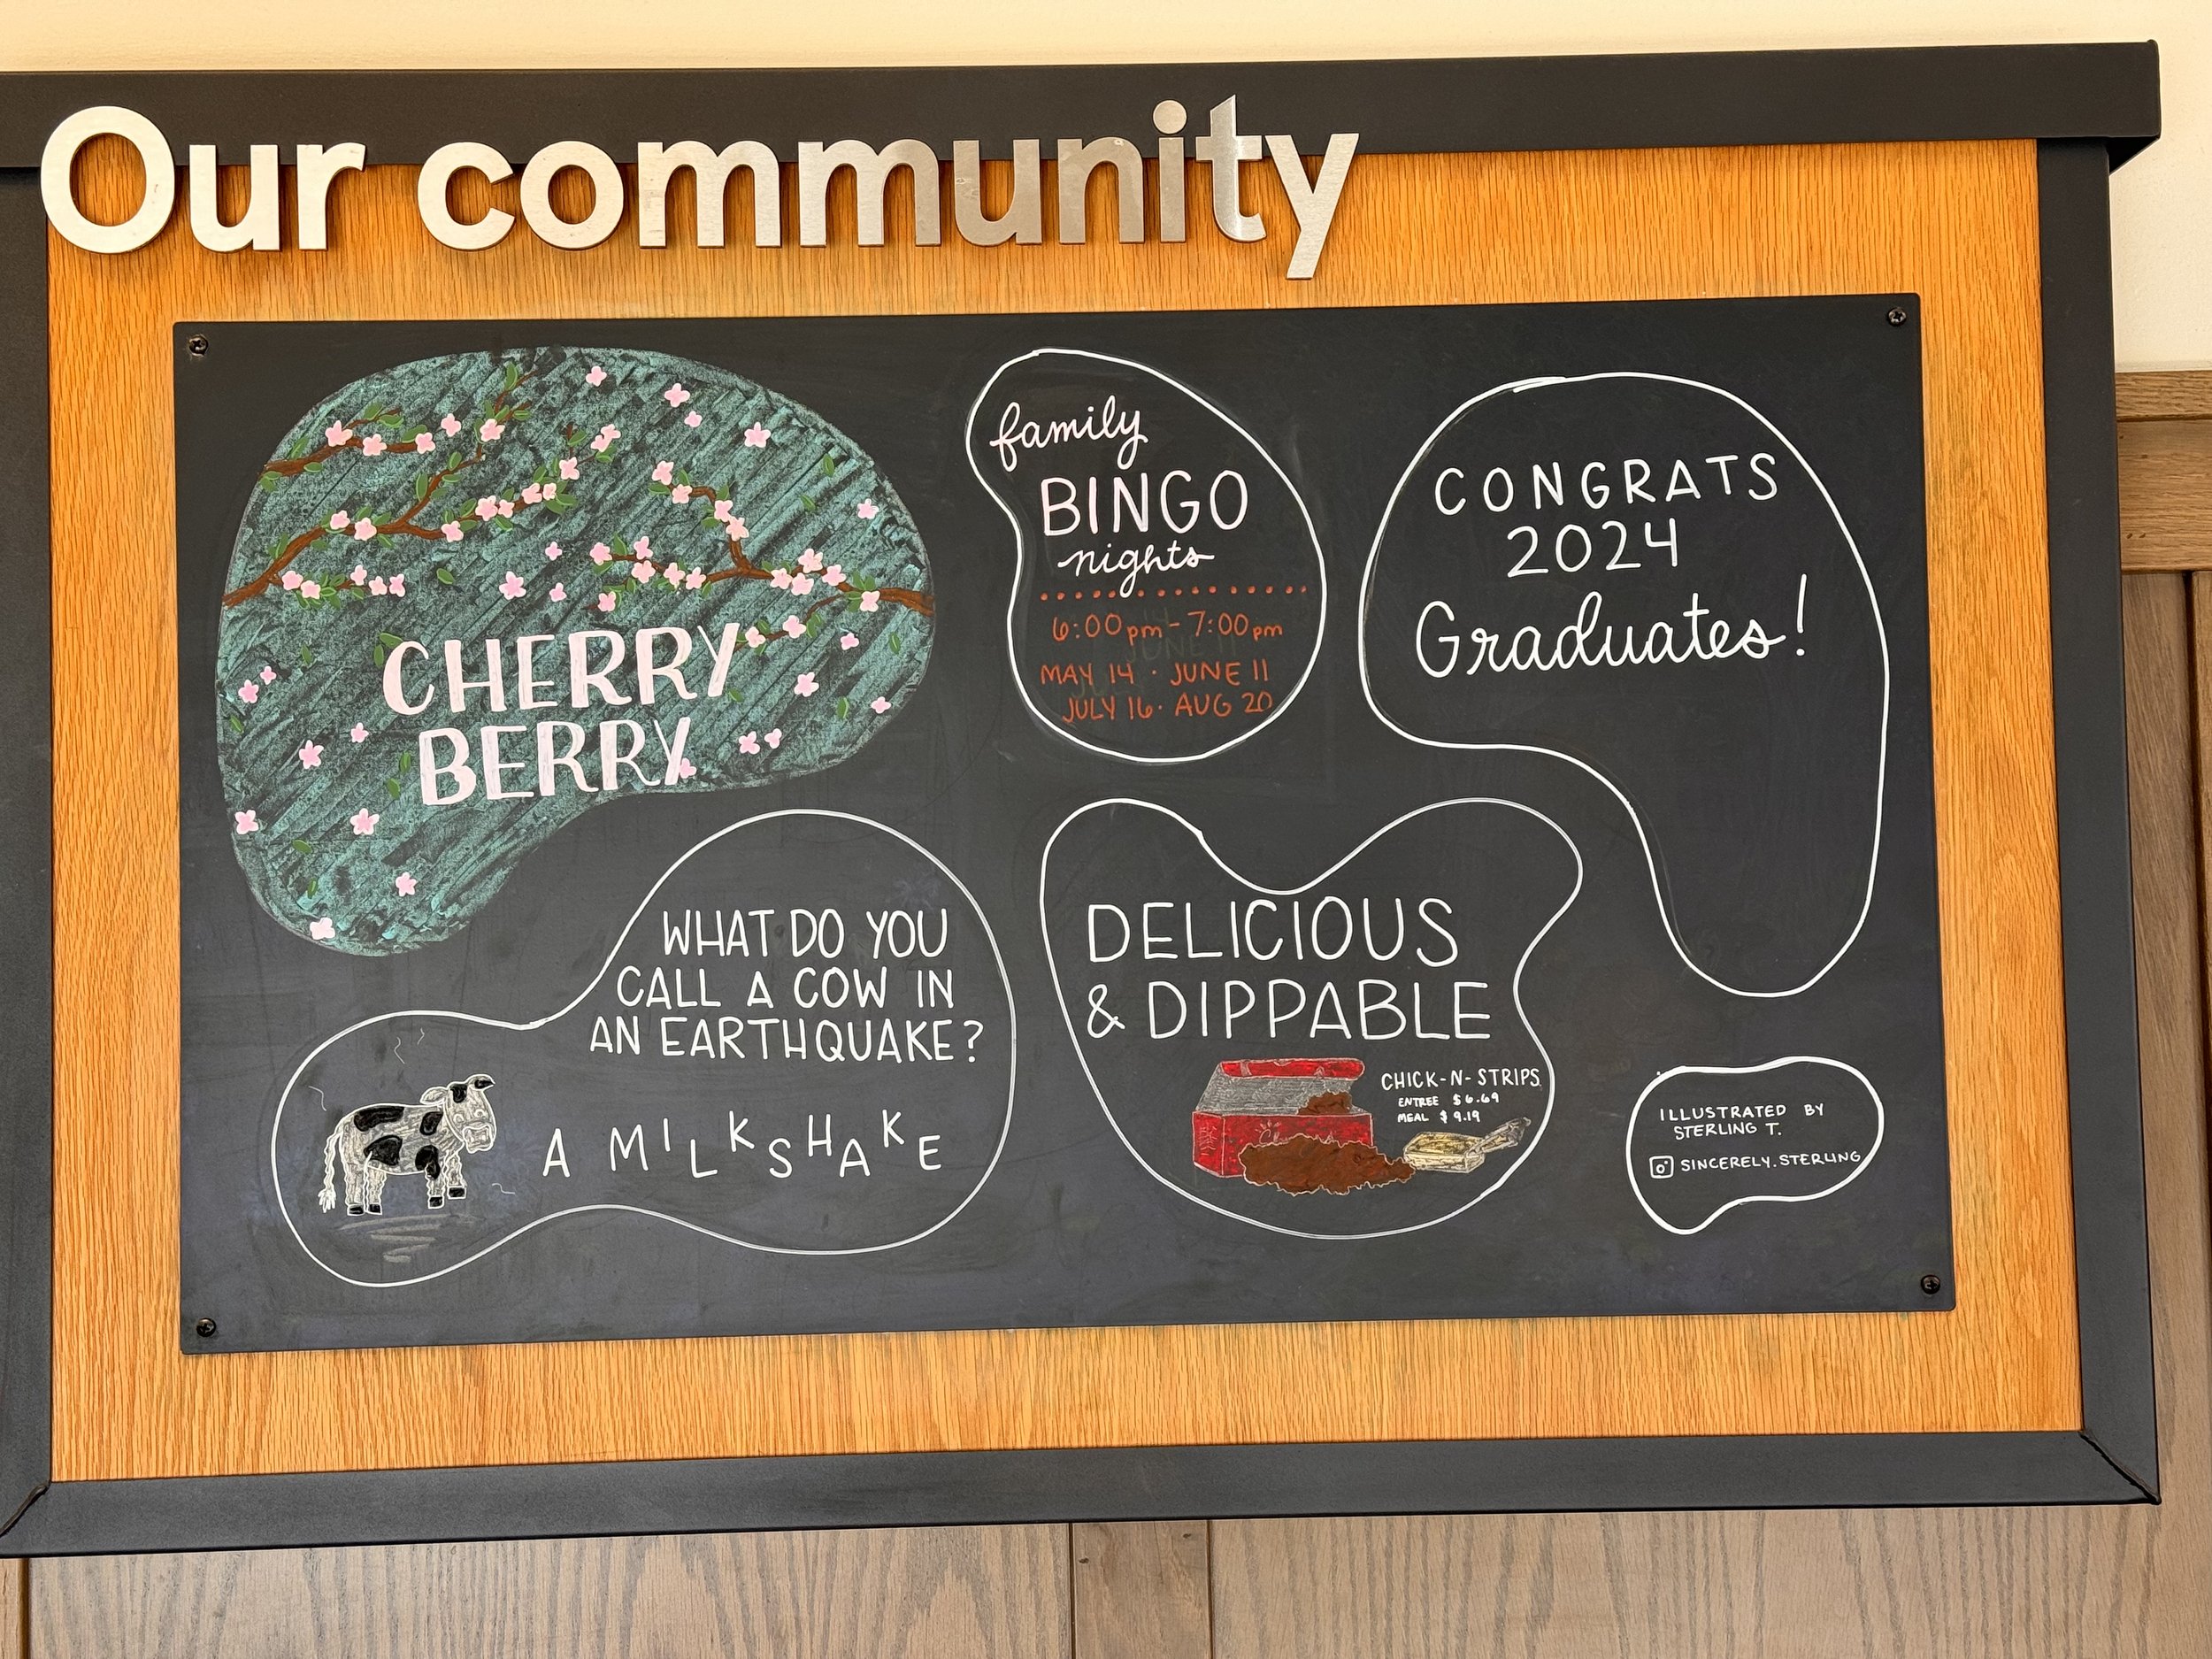 Our community
CHERRY
BERRY
family
BINGO
nights
6:00pm - 7:00pm
MAY 14 · JUNE 11
JULY 16 · AUG 20
CONGRATS
2024
Graduates!
WHAT DO YOU
CALL A COW IN
AN EARTHQUAKE?
A MILKSHAKE
DELICIOUS
& DIPPABLE
CHICK-N-STRIPS
ENTREE $6.69
MEAL $9.19
ILLUSTRATED BY
STERLING T.
SINCERELY.STERLING